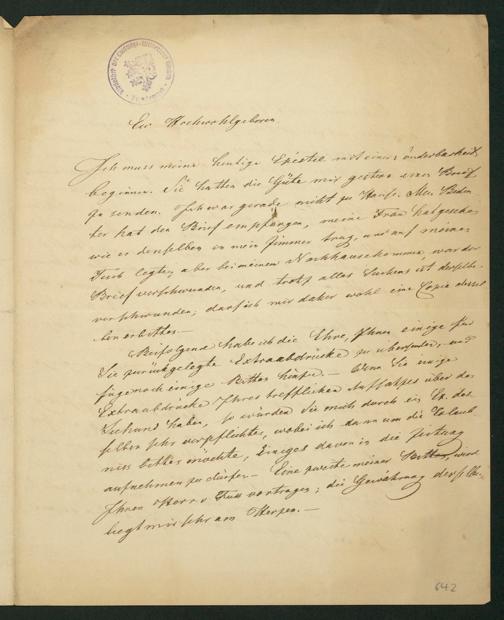 Ew Hochwohlgeboren
Ich muss meine heutige Epistel mit einer Sonderbarkeit
beginnen. Sie hatten die Güte mir gestern einen Brief
zu senden. Ich war gerade nicht zu Hause. Mein Bedien
ter hat den Brief empfangen, meine Frau hat gesehen
wie er denselben in mein Zimmer trug, und auf meinen
Tisch legte, aber bei meinem Nachhausekommen, war der
Brief verschwunden, und trotz alles Suchens ist derselbe
verschwunden, darf ich mir daher wohl eine Copie dessel
ben erbitten.—
Beifolgend habe ich die Ehre, Ihnen einige für
Sie zurückgelegte Extraabdrücke zu übersenden, und
füge noch einige Bitten hinzu.— Wenn Sie einige
Extraabdrücke Ihres trefflichen Aufsatzes über das
haben, so würden Sie mich durch ein Ex. des
selben sehr verpflichten, wobei ich dann um die Erlaub
niss bitten möchte, Einiges davon in die Zeitung
aufnehmen zu dürfen.— Eine zweite meiner Bitten, wird
Ihnen Herr v Fuss vortragen; die Gewährung derselben
liegt mir sehr am Herzen.—
642